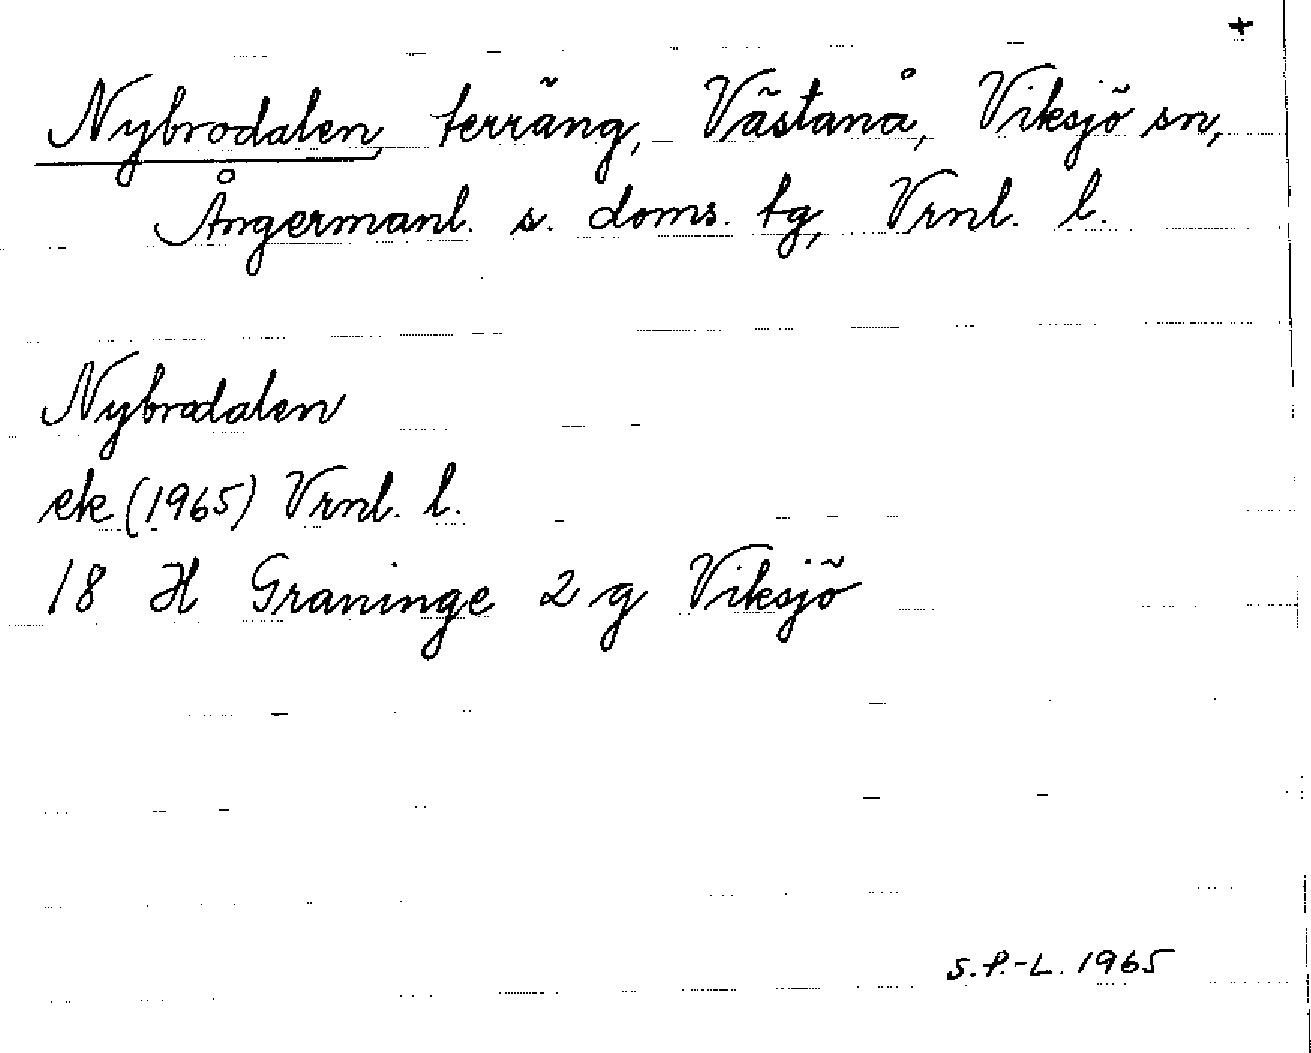 +
Nybrodalen, terräng, Västanå, Viksjö sn,
Ångermanl. s. doms. tg, Vrnl. l.
Nybrodalen
ek (1965) Vrnl. l.
18 H Graninge 2 g Viksjö
S.P.-L. 1965